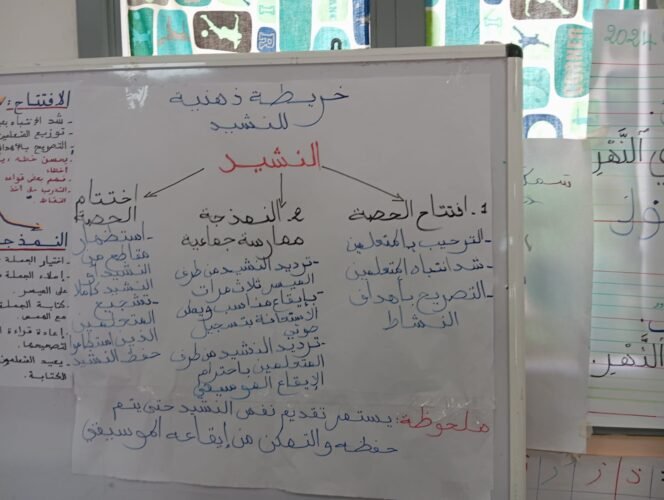 خريطة ذهنية
للنشيد
النشيد
1. افتتاح الحصة
- الترحيب بالمتعلمين
- شد انتباه المتعلمين
- التصريح بأهداف
النشاط
2. النمذجة
ممارسة جماعية
- ترديد النشيد من طرف
الميسر ثلاث مرات
بإيقاع مناسب ويمكن
الاستعانة بتسجيل
صوتي
- ترديد النشيد من طرف
المتعلمين باحترام
الإيقاع الموسيقي
اختتام
الحصة
- استظهار
مقاطع من
النشيد أو
النشيد كاملا
- تشجيع
المتعلمين
الذين استظهروا
حفظ النشيد
ملحوظة: يستمر تقديم نفس النشيد حتى يتم
حفظه والتمكن من إيقاعه الموسيقي
الافتتاح:
- شد الانتباه
- توزيع
التصريح
أخطاء
النقاط
النمذجة
- اختيار الجملة
- إملاء الجملة
على الميسر
- كتابة الجملة
مع
- إعادة قراءة
لتصحيحها
- يعيد المتعلمون
الكتابة.
2024
النَّهْرِ
النَّهْرِ.
ر ز